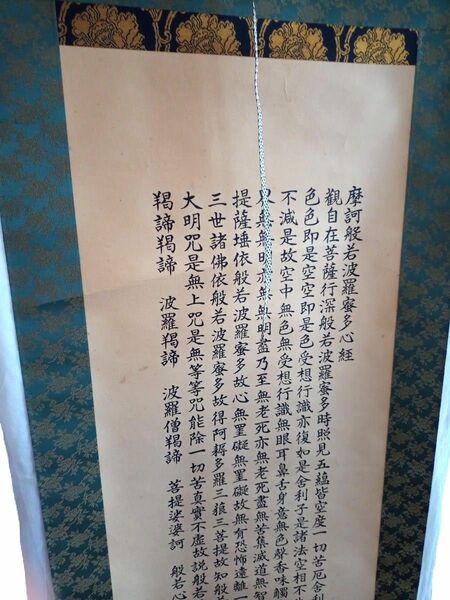 摩訶般若波羅蜜多心經
觀自在菩薩行深般若波羅蜜多時照見五蘊皆空度一切苦厄舍利
色色即是空空即是色受想行識亦復如是舍利子是諸法空相不
不減是故空中無色無受想行識無眼耳鼻舌身意無色聲香味觸
界無無明亦無無明盡乃至無老死亦無老死盡無苦集滅道無智
提薩埵依般若波羅蜜多故心無罣礙無罣礙故無有恐怖遠離一
三世諸佛依般若波羅蜜多故得阿耨多羅三藐三菩提故知般
大明咒是無上咒是無等等咒能除一切苦真實不虛故説般若
羯諦羯諦 波羅羯諦 波羅僧羯諦 菩提娑婆訶 般若心